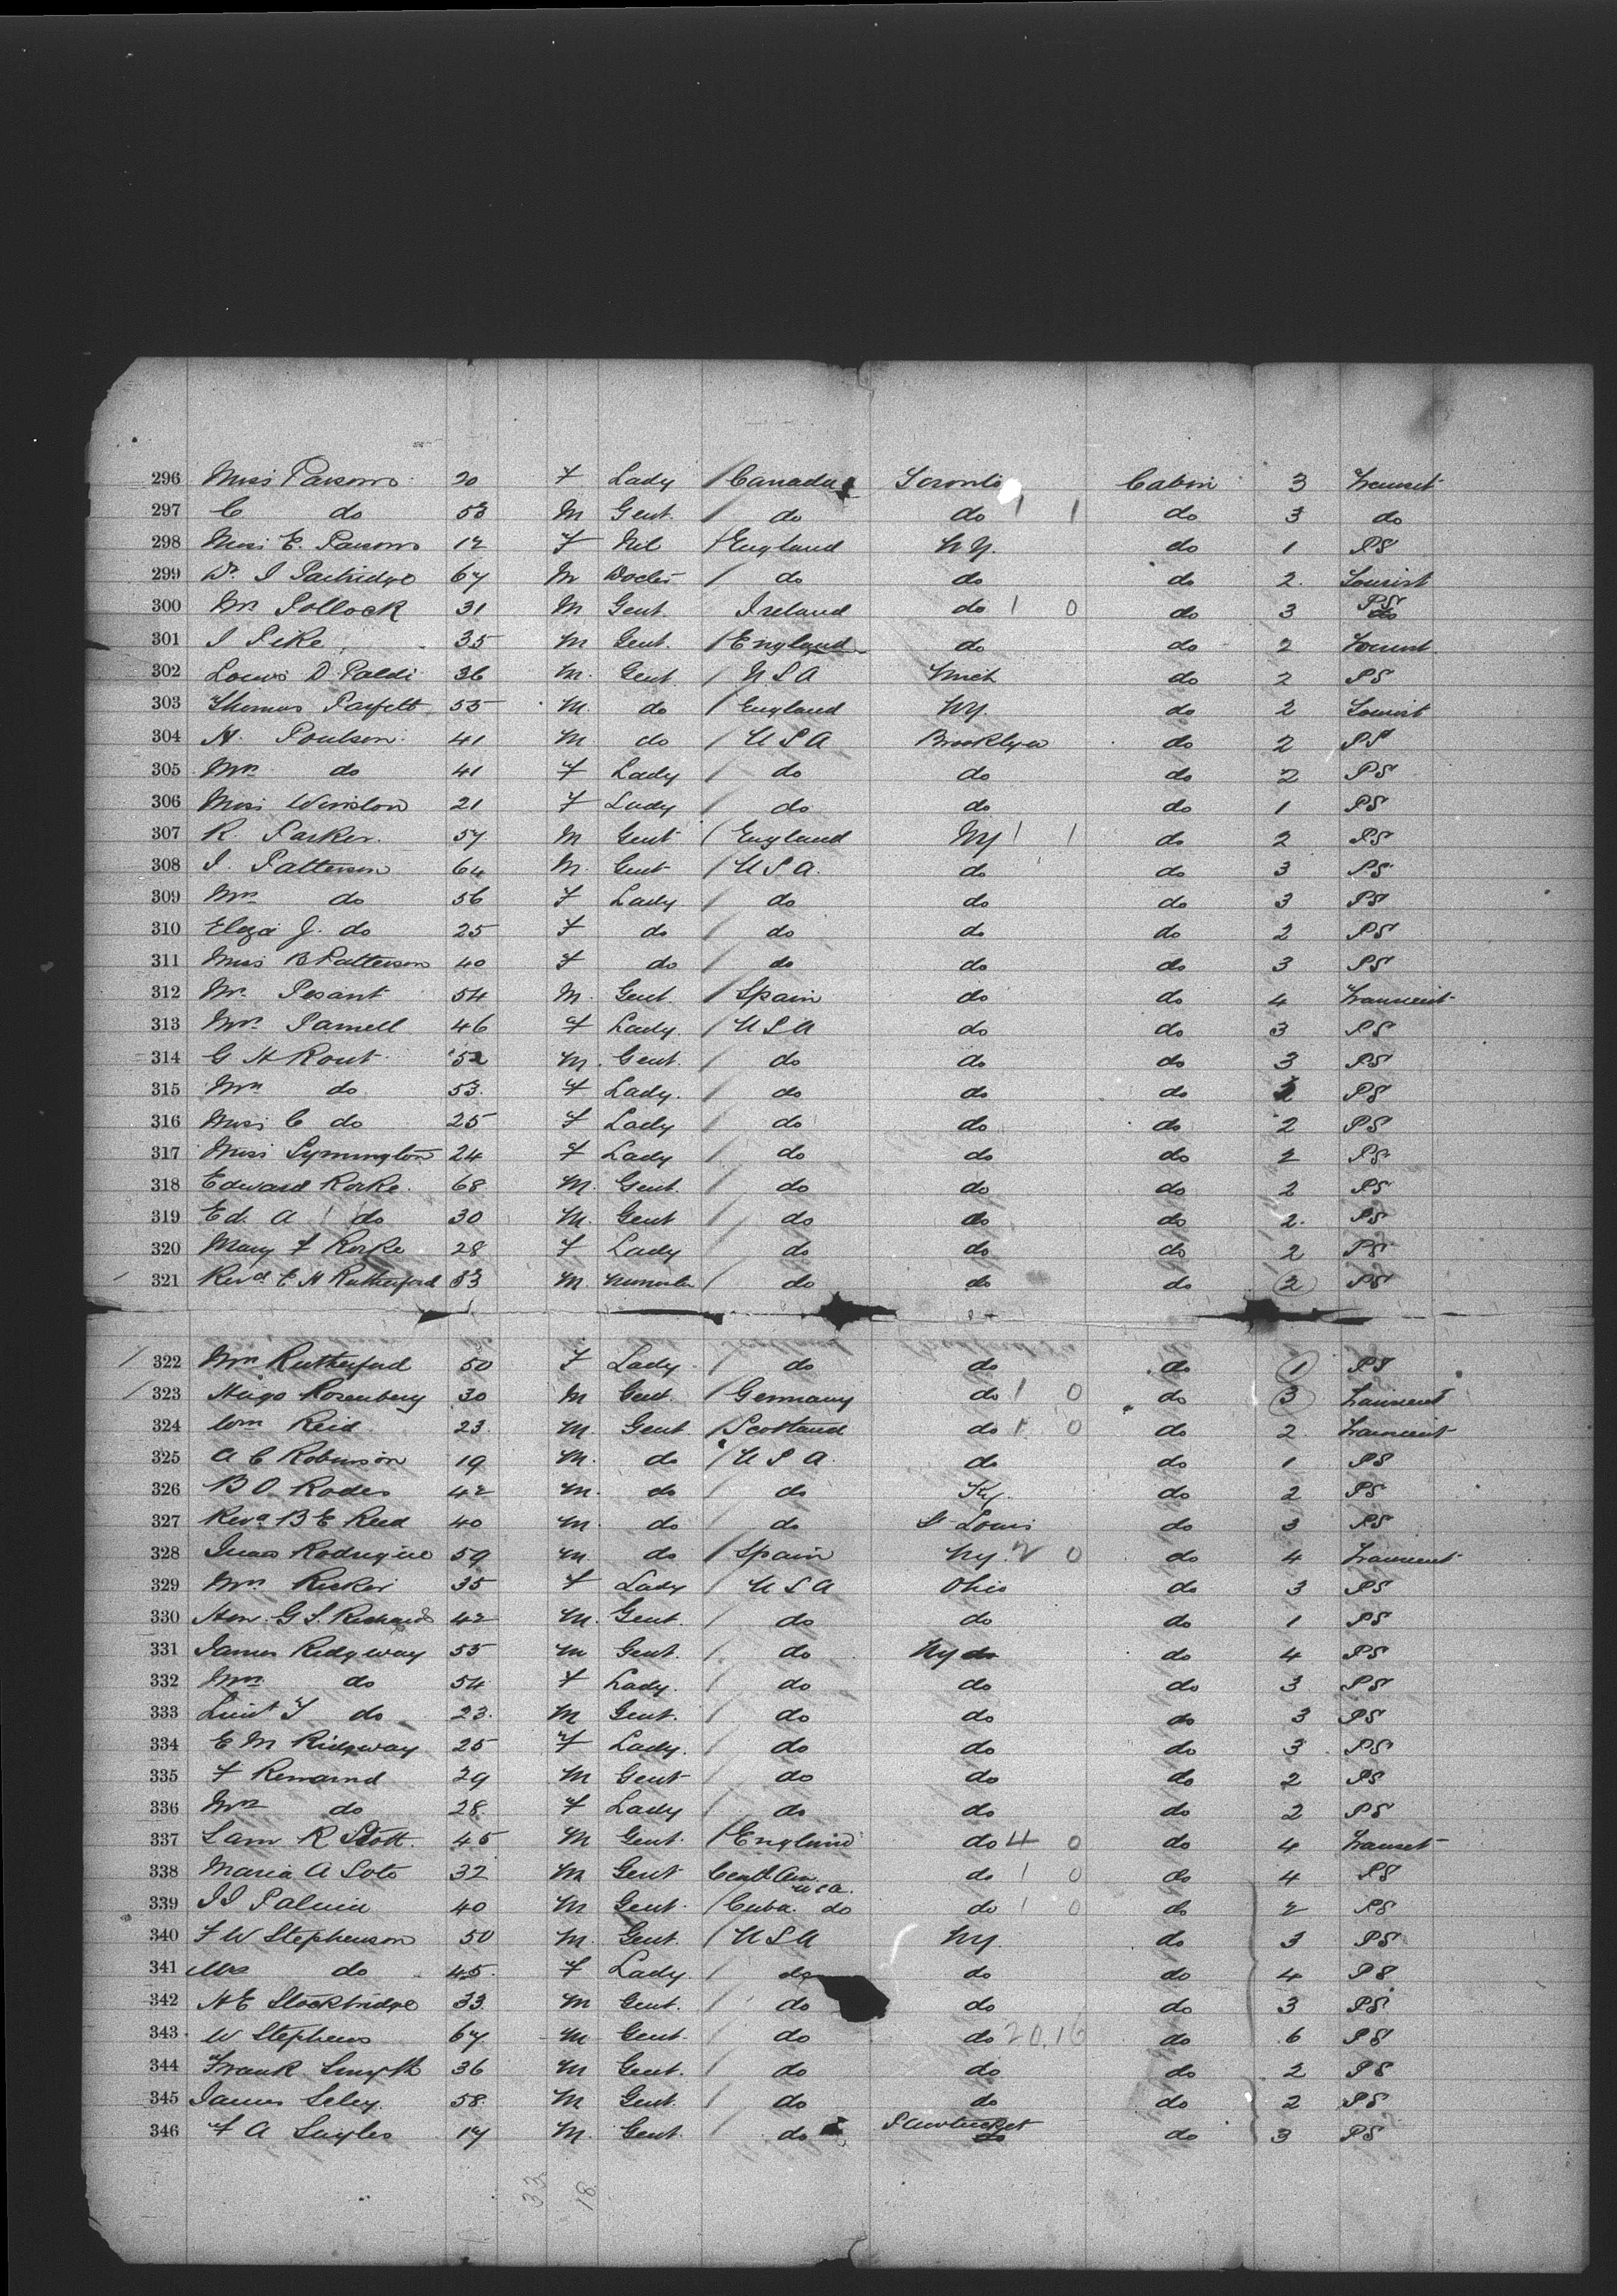 296 Miss Parsons 20 F Lady / Canada Toronto Cabin 3 Transit
297 C do 53 M Gent. / do do 1 1 do 3 do
298 Miss E. Parsons 12 F Nil / England N.Y. do 1 PS
299 Dr. J Partridge 67 M Doctor / do do do 2. Tourist
300 Mr Pollock 31 M Gent Ireland do 1 0 do 3 PS
301 J Pike 35 M Gent. / England do do 2 Tourist
302 Louis D Paldi 36 M. Gent / USA Mich do 2 PS
303 Thomas Parfett 55 M. do / England NY. do 2 Tourist
304 H. Poulson 41 M. do / USA Brooklyn do 2 PS
305 Mrs do 41 F Lady / do do do 2 PS
306 Miss Winslow 21 F Lady / do do do 1 PS
307 R. Parker. 57 M Gent / England NY 1 1 do 2 PS
308 J. Patterson 64 M. Gent / USA. do do 3 PS
309 Mrs do 56 F Lady / do do do 3 PS
310 Eliza J. do 25 F do / do do do 2 PS
311 Miss B Patterson 40 F do / do do do 3 PS
312 Mr. Pesant 54 M. Gent. / Spain do do 4 Transient
313 Mrs Parnell 46 F Lady / USA do do 3 PS
314 G H Rout 52 M. Gent. / do do do 3 PS
315 Mrs do 53. F Lady. / do do do PS
316 Miss C do 25 F Lady / do do do 2 PS
317 Miss Symington 24 F Lady / do do do 2 PS
318 Edward Rorke. 68 M. Gent. / do do do 2 PS
319 Ed. A do 30 M. Gent / do do do 2. PS
320 Mary F Rorke 28 F Lady / do do do 2 PS
/ 321 Revd E H Rutherford 53 M. Minister / do do do 2 PS
/ 322 Mrs Rutherford 50 F Lady / do do do 1 PS
/ 323 Hugo Rosenberg 30 M Gent. / Germany do 1 0 do 3 Transient
324 Wm Reid 23. M. Gent / Scotland do 1 0 do 2 Transient
325 A C Robinson 19 M. do / USA. do do 1 PS
326 B O. Rodes 42 M. do / do Ky. do 2 PS
327 Revd B E Reed 40 M. do / do St Louis do 3 PS
328 Rodrigue 59 M. do / Spain NY. 2 0 do 4 Transient
329 Mrs Ricker 35 F Lady / USA Ohio do 3 PS
330 Hon. G S. Richards 42 M. Gent. / do do do 1 PS
331 James Ridgway 55 M Gent. / do NY do do 4 PS
332 Mrs do 54 F Lady. / do do do 3 PS
333 Lieut F do 23. M Gent. / do do do 3 PS
334 E M Ridgway 25 F Lady. / do do do 3 PS
335 F Renarnd 29 M Gent / do do do 2 PS
336 Mrs do 28. F Lady / do do do 2 PS
337 Sam R Stott. 45 M Gent. / England do 4 0 do 4 Transit
338 Maria A Soto 32 M Gent Centl Am. do 1 0 do 4 PS
USA.
339 40 M Gent. / Cuba. do do 1 0 do 2 PS
340 F W Stephenson 50 M. Gent. / USA NY. do 3 PS
341 Mrs do 45. F Lady / do do do 4 PS
342 H E Stockbridge 33. M Gent. / do do do 3 PS
343. W Stephens 67 M Gent. / do do 20.16 do 6 PS
344 Frank Smyth 36 M Gent. / do do do 2 PS
345 James Seley. 58. M Gent. / do do do 2 PS
346 F A Sayles 17 M. Gent. / do Pawtucket do 3 PS
33 18